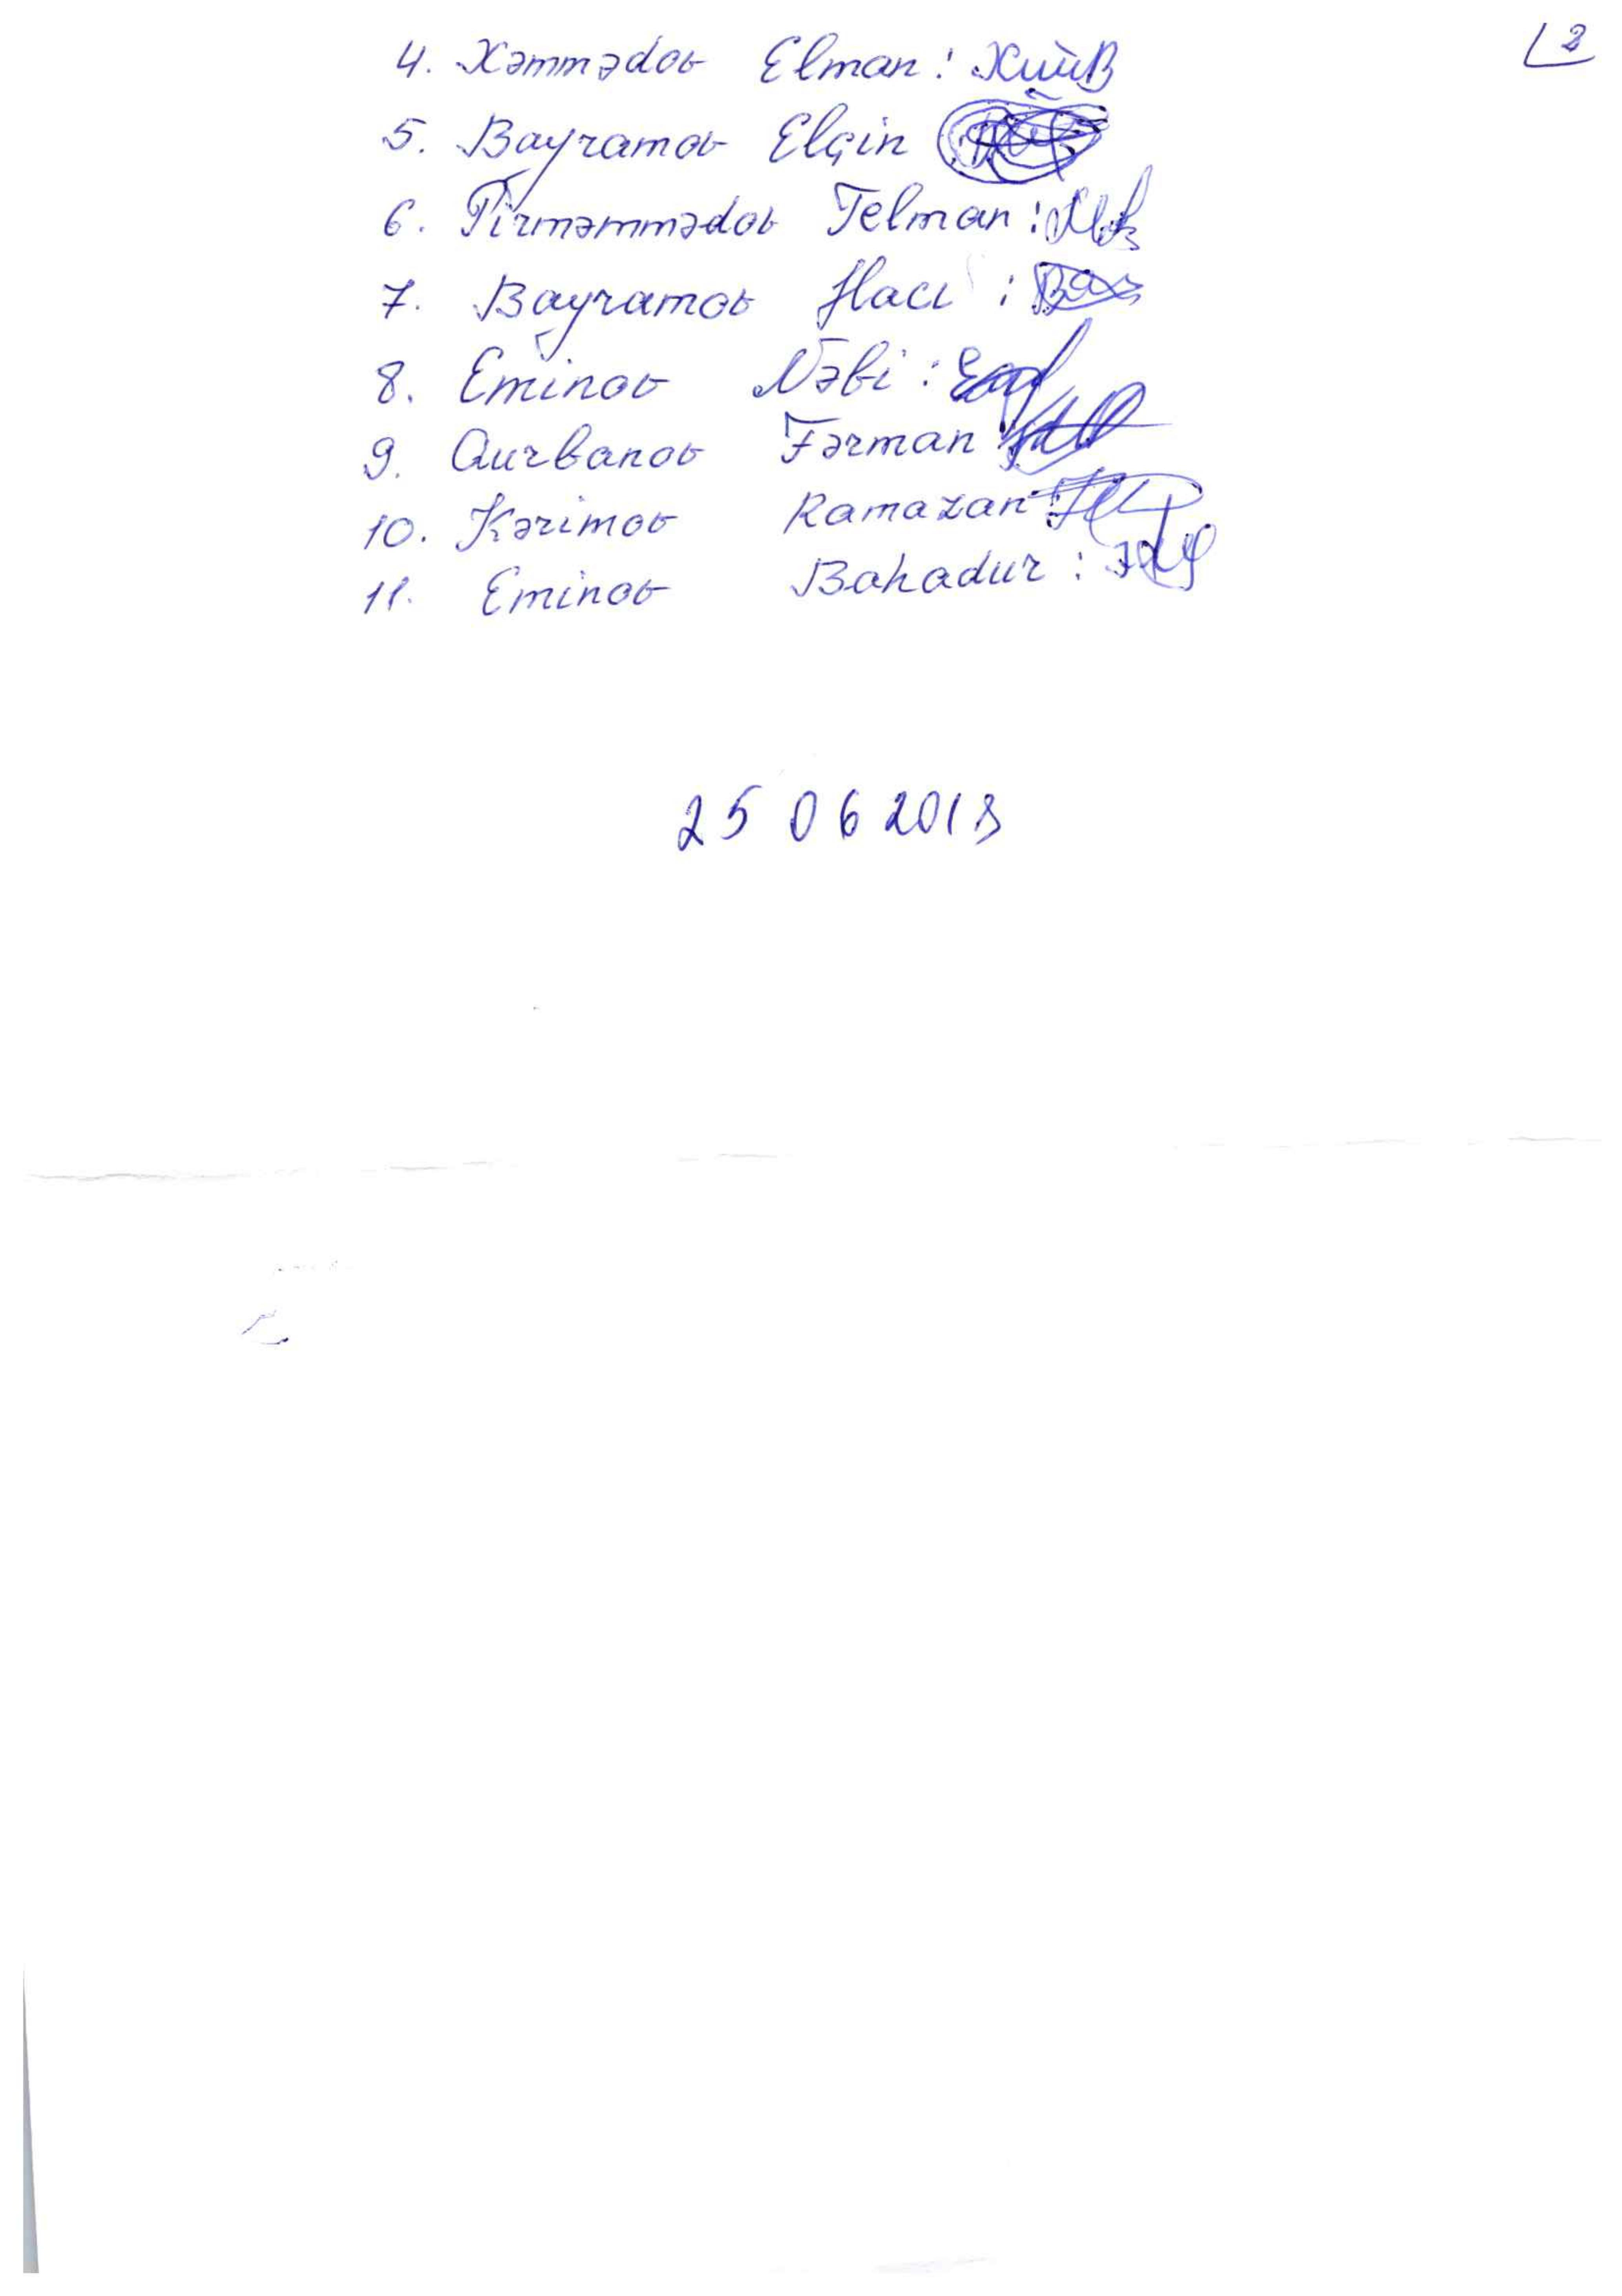 2
4. Xəmmədov Elman:
5. Bayramov Elçin
6. Pirməmmədov Telman:
7. Bayramov Hacı:
8. Eminov Nəbi:
9. Qurbanov Fərman
10. Kərimov Ramazan:
11. Eminov Bahadur:
25 06 2018